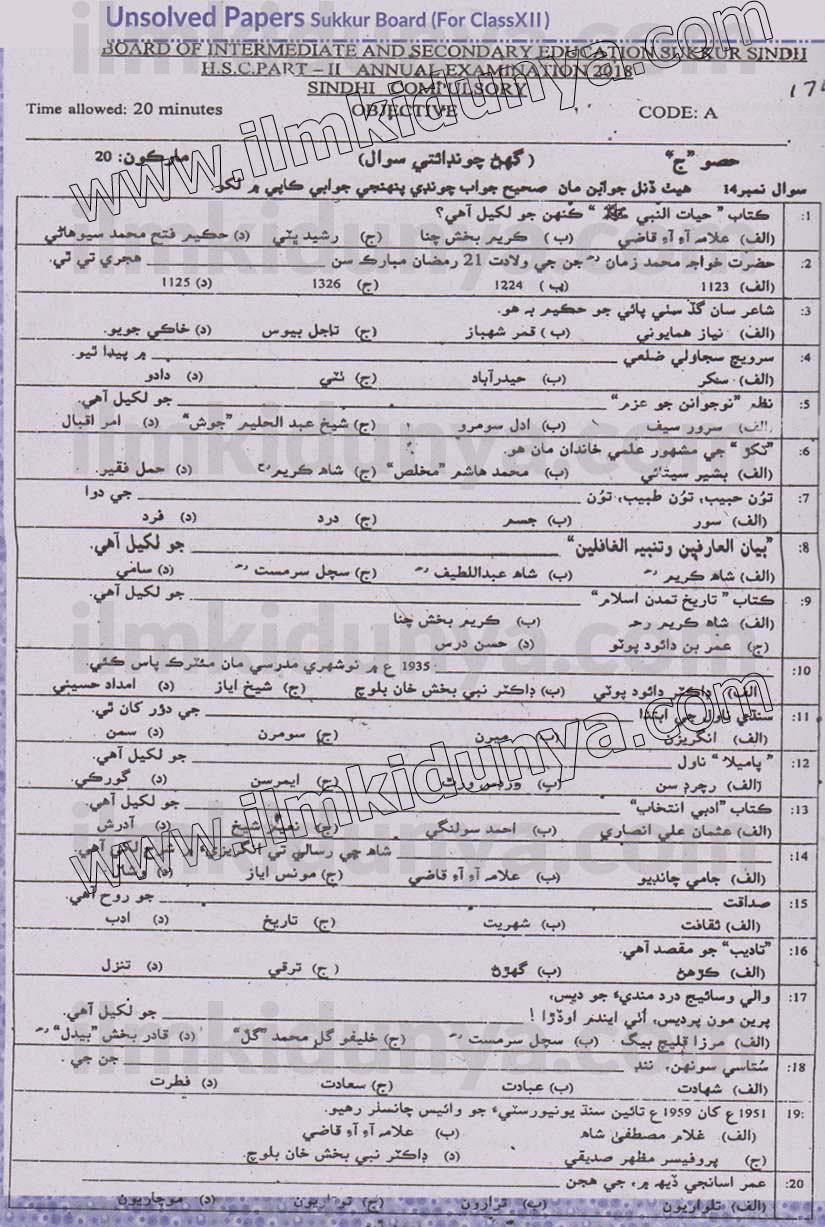 Unsolved Papers Sukkur Board (For ClassXII)
BOARD OF INTERMEDIATE AND SECONDARY EDUCATION SUKKUR SINDH
H.S.C.PART – II ANNUAL EXAMINATION 2018
SINDHI COMPULSORY
Time allowed: 20 minutes OBJECTIVE CODE: A
حصو ”ج“ (گهڻ چونڊائتي سوال) مارڪون: 20
سوال نمبر14 هيٺ ڏنل جوابن مان صحيح جواب چونڊي پنهنجي جوابي ڪاپي ۾ لکو.
1: ڪتاب ”حيات النبي ﷺ“ ڪنهن جو لکيل آهي؟
(الف) علامه آءِ آءِ قاضي (ب) ڪريم بخش چنا (ج) رشيد ڀٽي (د) حڪيم فتح محمد سيوهاڻي
2: حضرت خواجه محمد زمان رح جن جي ولادت 21 رمضان مبارڪ سن ______ هجري تي ٿي.
(الف) 1123 (ب) 1224 (ج) 1326 (د) 1125
3: شاعر سان گڏ سٺي پائي جو حڪيم به هو.
(الف) نياز همايوني (ب) قمر شهباز (ج) تاجل بيوس (د) خاڪي جويو.
4: سرويچ سجاولي ضلعي ______ ۾ پيدا ٿيو.
(الف) سکر (ب) حيدرآباد (ج) ٺٽي (د) دادو
5: نظم ”نوجوانن جو عزم“ ______ جو لکيل آهي.
(الف) سرور سيف (ب) ادل سومرو (ج) شيخ عبد الحليم ”جوش“ (د) امر اقبال
6: ”ٽکڙ“ جي مشهور علمي خاندان مان هو.
(الف) بشير سيٿائي (ب) محمد هاشم ”مخلص“ (ج) شاهه ڪريم رح (د) حمل فقير.
7: تون حبيب، تون طبيب، تون ______ جي دوا
(الف) سور (ب) جسم (ج) درد (د) فرد
8: ”بيان العارفين وتنبيہ الغافلين“ ______ جو لکيل آهي.
(الف) شاهه ڪريم رح (ب) شاهه عبداللطيف رح (ج) سچل سرمست رح (د) سامي
9: ڪتاب ”تاريخ تمدن اسلام“ ______ جو لکيل آهي.
(الف) شاهه ڪريم رح (ب) ڪريم بخش چنا
(ج) عمر بن دائود پوٽو (د) حسن درس
10: ______ 1935ع ۾ نوشهري مدرسي مان مئٽرڪ پاس ڪئي.
(الف) ڊاڪٽر دائود پوٽي (ب) ڊاڪٽر نبي بخش خان بلوچ (ج) شيخ اياز (د) امداد حسيني
11: سنڌي ناول جي ابتدا ______ جي دؤر کان ٿي.
(الف) انگريزن (ب) ميرن (ج) سومرن (د) سمن
12: ”پاميلا“ ناول ______ جو لکيل آهي.
(الف) رچرڊ سن (ب) ورڊس ورٿ (ج) ايمرسن (د) گورڪي
13: ڪتاب ”ادبي انتخاب“ ______ جو لکيل آهي.
(الف) عثمان علي انصاري (ب) احمد سولنگي (ج) شيخ (د) آدرش
14: ______ شاهه جي رسالي تي انگريزيءَ ۾ لکي آهي.
(الف) جامي چانڊيو (ب) علامه آءِ آءِ قاضي (ج) مونس اياز (د)
15: صداقت ______ جو روح آهي.
(الف) ثقافت (ب) شهريت (ج) تاريخ (د) ادب
16: ”تاديب“ جو مقصد آهي.
(الف) ڪڙهڻ (ب) گهڙڻ (ج) ترقي (د) تنزل
17: والي وسائيج درد منديءَ جو ديس،
پرين مون پرديس، آڻي ايندم اوڏڙا! ______ جو لکيل آهي.
(الف) مرزا قليچ بيگ (ب) سچل سرمست رح (ج) خليفو گل محمد ”گل“ (د) قادر بخش ”بيدل“ رح
18: سُتاسي سونهن، ننڊ ______ جن جي.
(الف) شهادت (ب) عبادت (ج) سعادت (د) فطرت
19: 1951ع کان 1959ع تائين سنڌ يونيورسٽيءَ جو وائيس چانسلر رهيو.
(الف) غلام مصطفيٰ شاهه (ب) علامه آءِ آءِ قاضي
(ج) پروفيسر مظهر صديقي (د) ڊاڪٽر نبي بخش خان بلوچ.
20: عمر اسانجي ڏيهه ۾، جي هجن
(الف) تلواريون (ب) ترارون (ج) (د) موچاريون
www.ilmkidunya.com
ilmkidunya.com